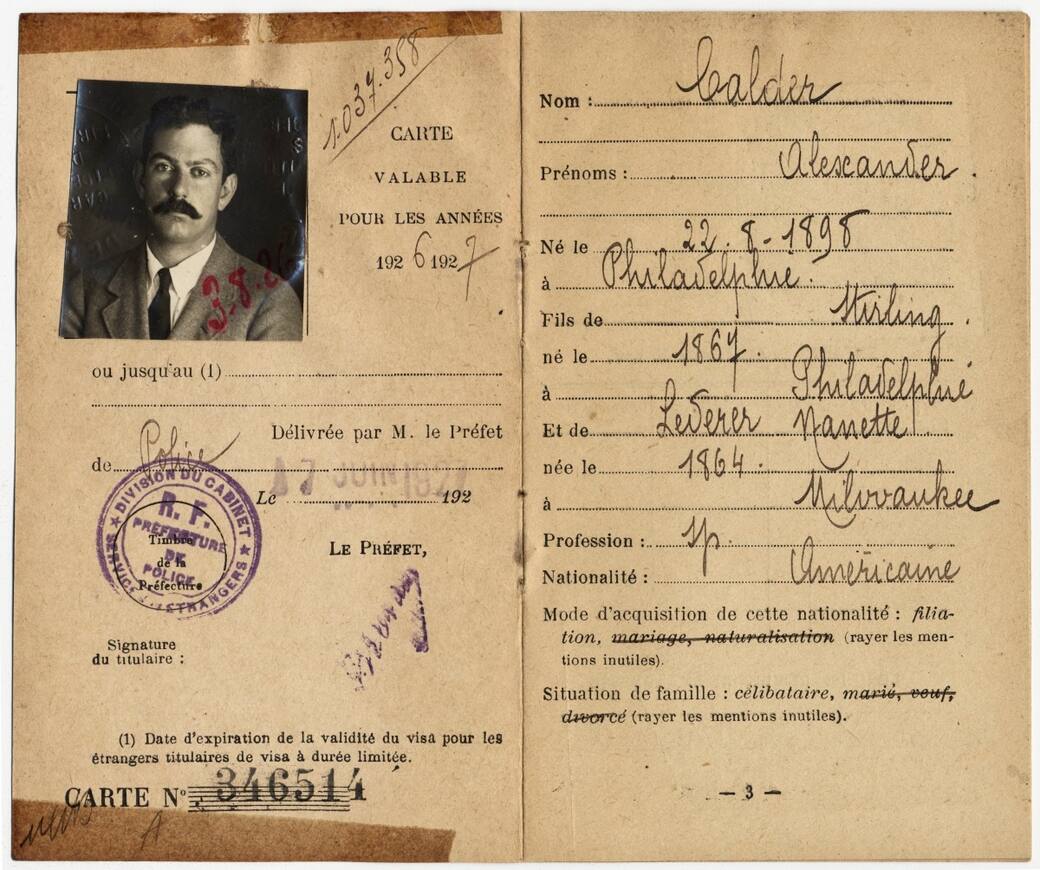 1.037.358
CARTE
VALABLE
POUR LES ANNÉES
1926 1927
3.8.26
ou jusqu'au (1)
Délivrée par M. le Préfet
de Police
Le 17 JUIN 1927 192
DIVISION DU CABINET
R. F.
PRÉFECTURE
DE
POLICE
SERVICE ÉTRANGERS
Timbre
de la
Préfecture
LE PRÉFET,
Signature
du titulaire :
(1) Date d'expiration de la validité du visa pour les
étrangers titulaires de visa à durée limitée.
CARTE N° 346514
Nom : Calder
Prénoms : Alexander.
Né le 22.8-1898
à Philadelphie.
Fils de Stirling.
né le 1867.
à Philadelphie
Et de Lederer Nanette
née le 1864.
à Milwaukee
Profession : sp.
Nationalité : Américaine
Mode d'acquisition de cette nationalité : filia-
tion, mariage, naturalisation (rayer les men-
tions inutiles).
Situation de famille : célibataire, marié, veuf,
divorcé (rayer les mentions inutiles).
— 3 —